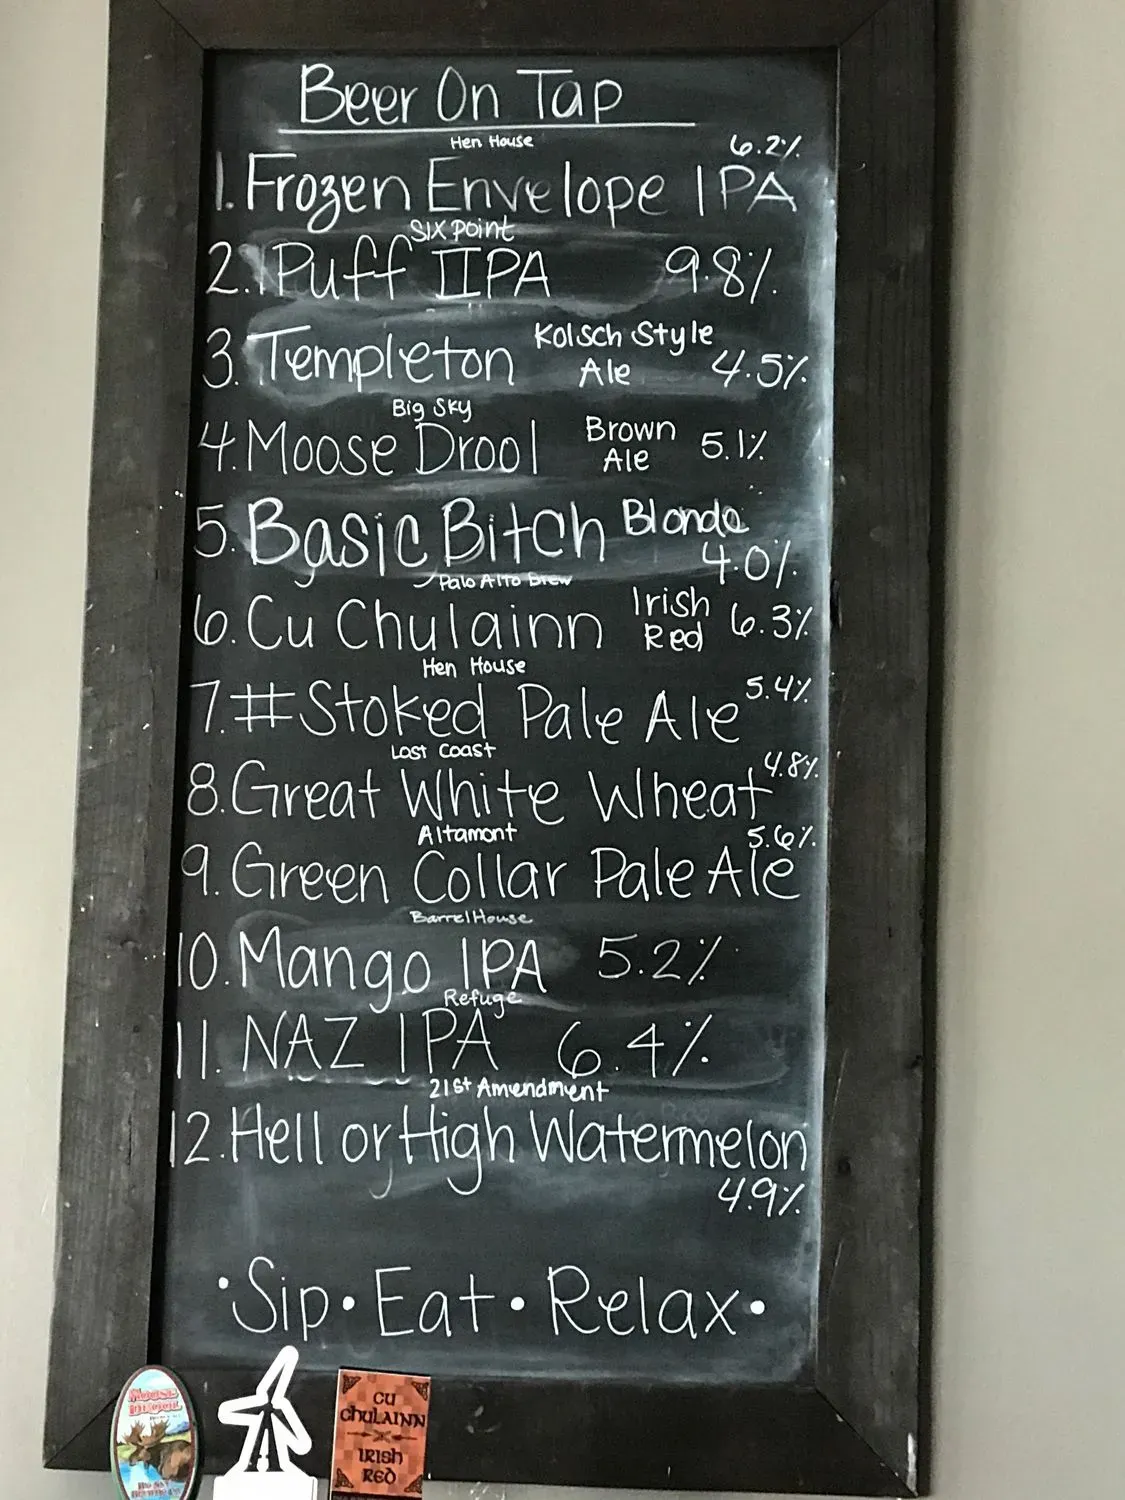 Beer On Tap
Hen House 6.2%
1. Frozen Envelope IPA
Six Point
2. Puff IIPA 9.8%
3. Templeton Kolsch Style
Ale 4.5%
Big Sky
4. Moose Drool Brown
Ale 5.1%
5. Basic Bitch Blonde
4.0%
Palo Alto Brew
6. Cu Chulainn Irish
Red 6.3%
Hen House
7. #Stoked Pale Ale 5.4%
Lost Coast
8. Great White Wheat 4.8%
Altamont 5.6%
9. Green Collar Pale Ale
BarrelHouse
10. Mango IPA 5.2%
Refuge
11. NAZ IPA 6.4%
21st Amendment
12. Hell or High Watermelon
4.9%
•Sip•Eat•Relax•
MOOSE
DROOL
CU
CHULAINN
IRISH
RED